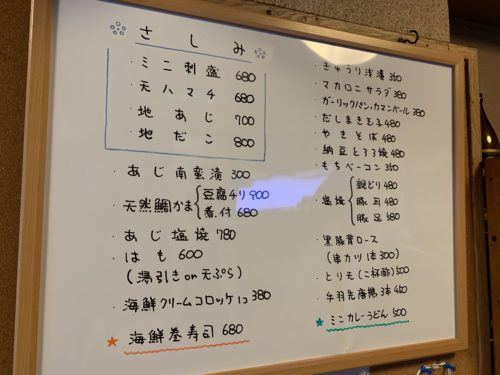 さしみ
・ミニ刺盛 680
・天ハマチ 680
・地あじ 700
・地だこ 800
・あじ南蛮漬 300
・天然鯛かま 豆腐チリ 900
煮付 680
・あじ塩焼 780
・はも 600
(湯引き or 天ぷら)
・海鮮クリームコロッケ1コ 380
★海鮮巻寿司 680
・きゅうり浅漬 350
・マカロニサラダ 380
・ガーリックパン、カマンベール 380
・だしまき玉子 480
・やきそば 480
・納豆とろろ焼 480
・もちベーコン 350
・塩焼 親どり 480
豚耳 480
豚足 580
・黒豚肩ロース
(串カツ 1本 300)
・とり天(ごま酢) 500
・手羽先唐揚 3本 450
★ミニカレーうどん 500